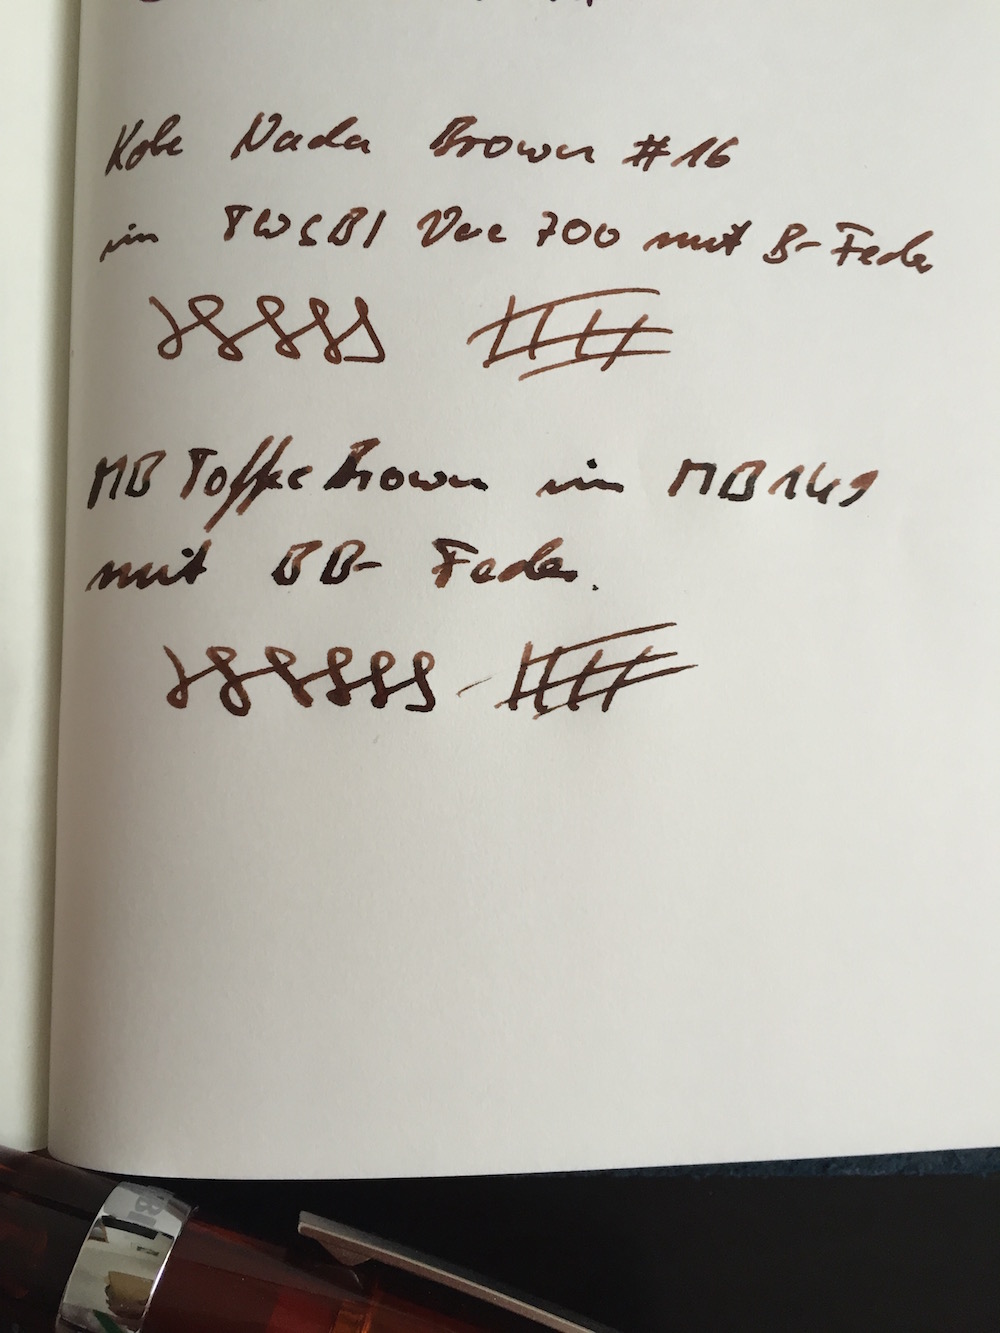 Kobe Nada Brown #16
in TWSBI Vac 700 mit B-Feder
MB Toffee Brown im MB149
mit BB-Feder.